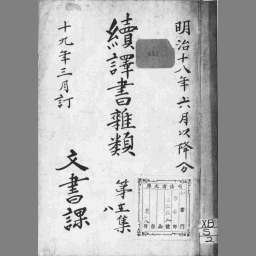 明治十八年六月以降分
續譯書雜類
第五集
八
十九年三月訂
文書課
XB
5
5